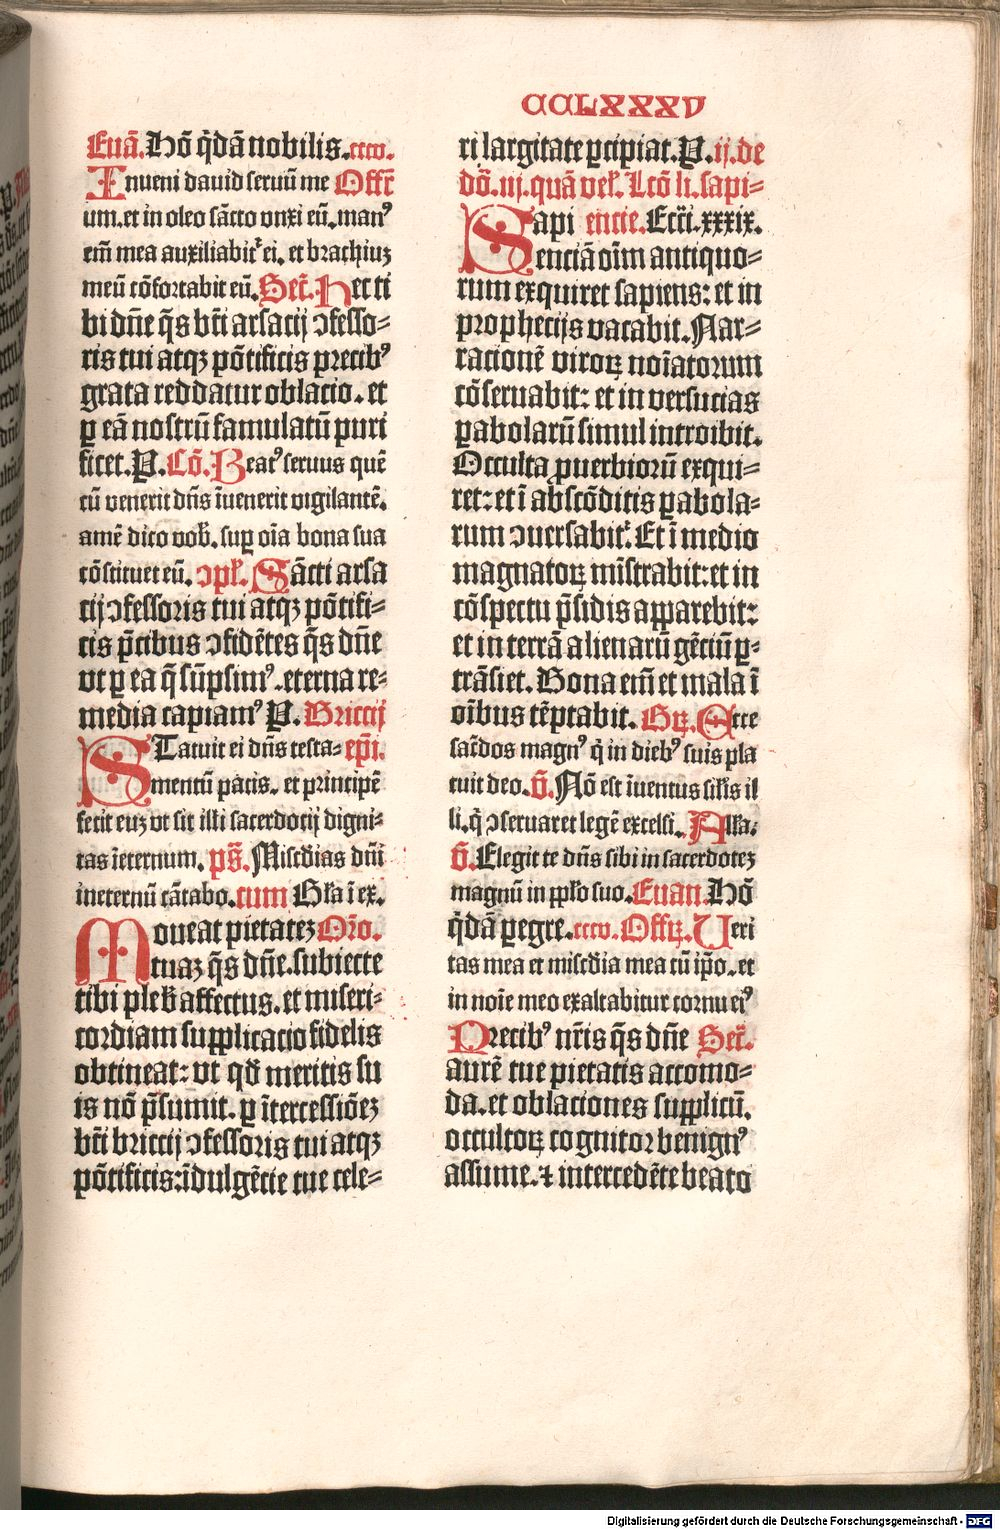 CCLXXXV
Euā. Hō q̄dā nobilis. cccv.
Inueni dauid seruū me Offr̄
um. et in oleo sācto vnxi eū. man᷒
em̄ mea auxiliabit᷑ ei. et brachiuꝫ
meū cōfortabit eū. Secr̄. Hec ti
bi dn̄e q̄s bt̄i arsacij ↄfesso⸗
ris tui atqꝫ pōtificis precib᷒
grata reddatur oblacio. et
ꝑ eā nostrū famulatū puri
ficet. P. Cō. Beat᷒ seruus quē
cū venerit dn̄s īuenerit vigilantē.
amē dico vob̄. suꝑ oīa bona sua
cōstituet eū. ↄpl̄. Sācti arsa
cij ↄfessoris tui atqꝫ pōtifi⸗
cis p̄cibus ↄfidētes q̄s dn̄e
vt ꝑ ea q̄ sūpsim᷒. eterna re⸗
media capiam᷒ P. Briccij
STatuit ei dn̄s testa⸗ ep̄i.
mentū pacis. et principē
fecit euꝫ vt sit illi sacerdocij digni⸗
tas īeternum. ps̄. Miscd̄ias dn̄i
ineternū cātabo. cum Gl̄a ī ex.
Moueat pietateꝫ Or̄o.
tuaꝫ q̄s dn̄e. subiecte
tibi pleb̄ affectus. et miseri⸗
cordiam supplicacio fidelis
obtineat: vt qd̄ meritis su
is nō p̄sumit. ꝑ ītercessiōeꝫ
bt̄i briccij ↄfessoris tui atqꝫ
pōtificis: īdulgēcie tue cele⸗
ri largitate ꝑcipiat. P. ij. de
dō. iij. quā vel̄. Lcō li. sapi⸗
Sapi encie. Ecc̄i. xxxix.
enciā oīm antiquo⸗
rum exquiret sapiens: et in
prophecijs vacabit. Nar⸗
racionē viroꝝ noīatorum
cōseruabit: et in versucias
ꝑabolarū simul introibit.
Occulta ꝓuerbiorū exqui⸗
ret: et ī abscōditis ꝑabola⸗
rum ↄuersabit᷑. Et ī medio
magnatoꝝ mīstrabit: et in
cōspectu p̄sidis apparebit:
et in terrā alienarū gēciū ꝑ⸗
trāsiet. Bona em̄ et mala ī
oībus tēptabit. Gꝝ. Ecce
sacꝛ̄dos magn᷒ q̄ in dieb᷒ suis pla
cuit deo. v̄. Nō est īuentus sil̄is il
li. q̄ ↄseruaret legē excelsi. All̄a.
v̄. Elegit te dn̄s sibi in sacerdoteꝫ
magnū in ppl̄o suo. Euan. Hō
q̄dā ꝑegre. cccv. Offꝝ. Ueri
tas mea et miscd̄ia mea cū ip̄o. et
in noīe meo exaltabitur cornu ei᷒
Precib᷒ nr̄is q̄s dn̄e Secr̄.
aurē tue pietatis accomo⸗
da. et oblaciones supplicū.
occultoꝝ cognitor benign᷒
assume. ⁊ intercedēte beato
Digitalisierung gefördert durch die Deutsche Forschungsgemeinschaft - DFG